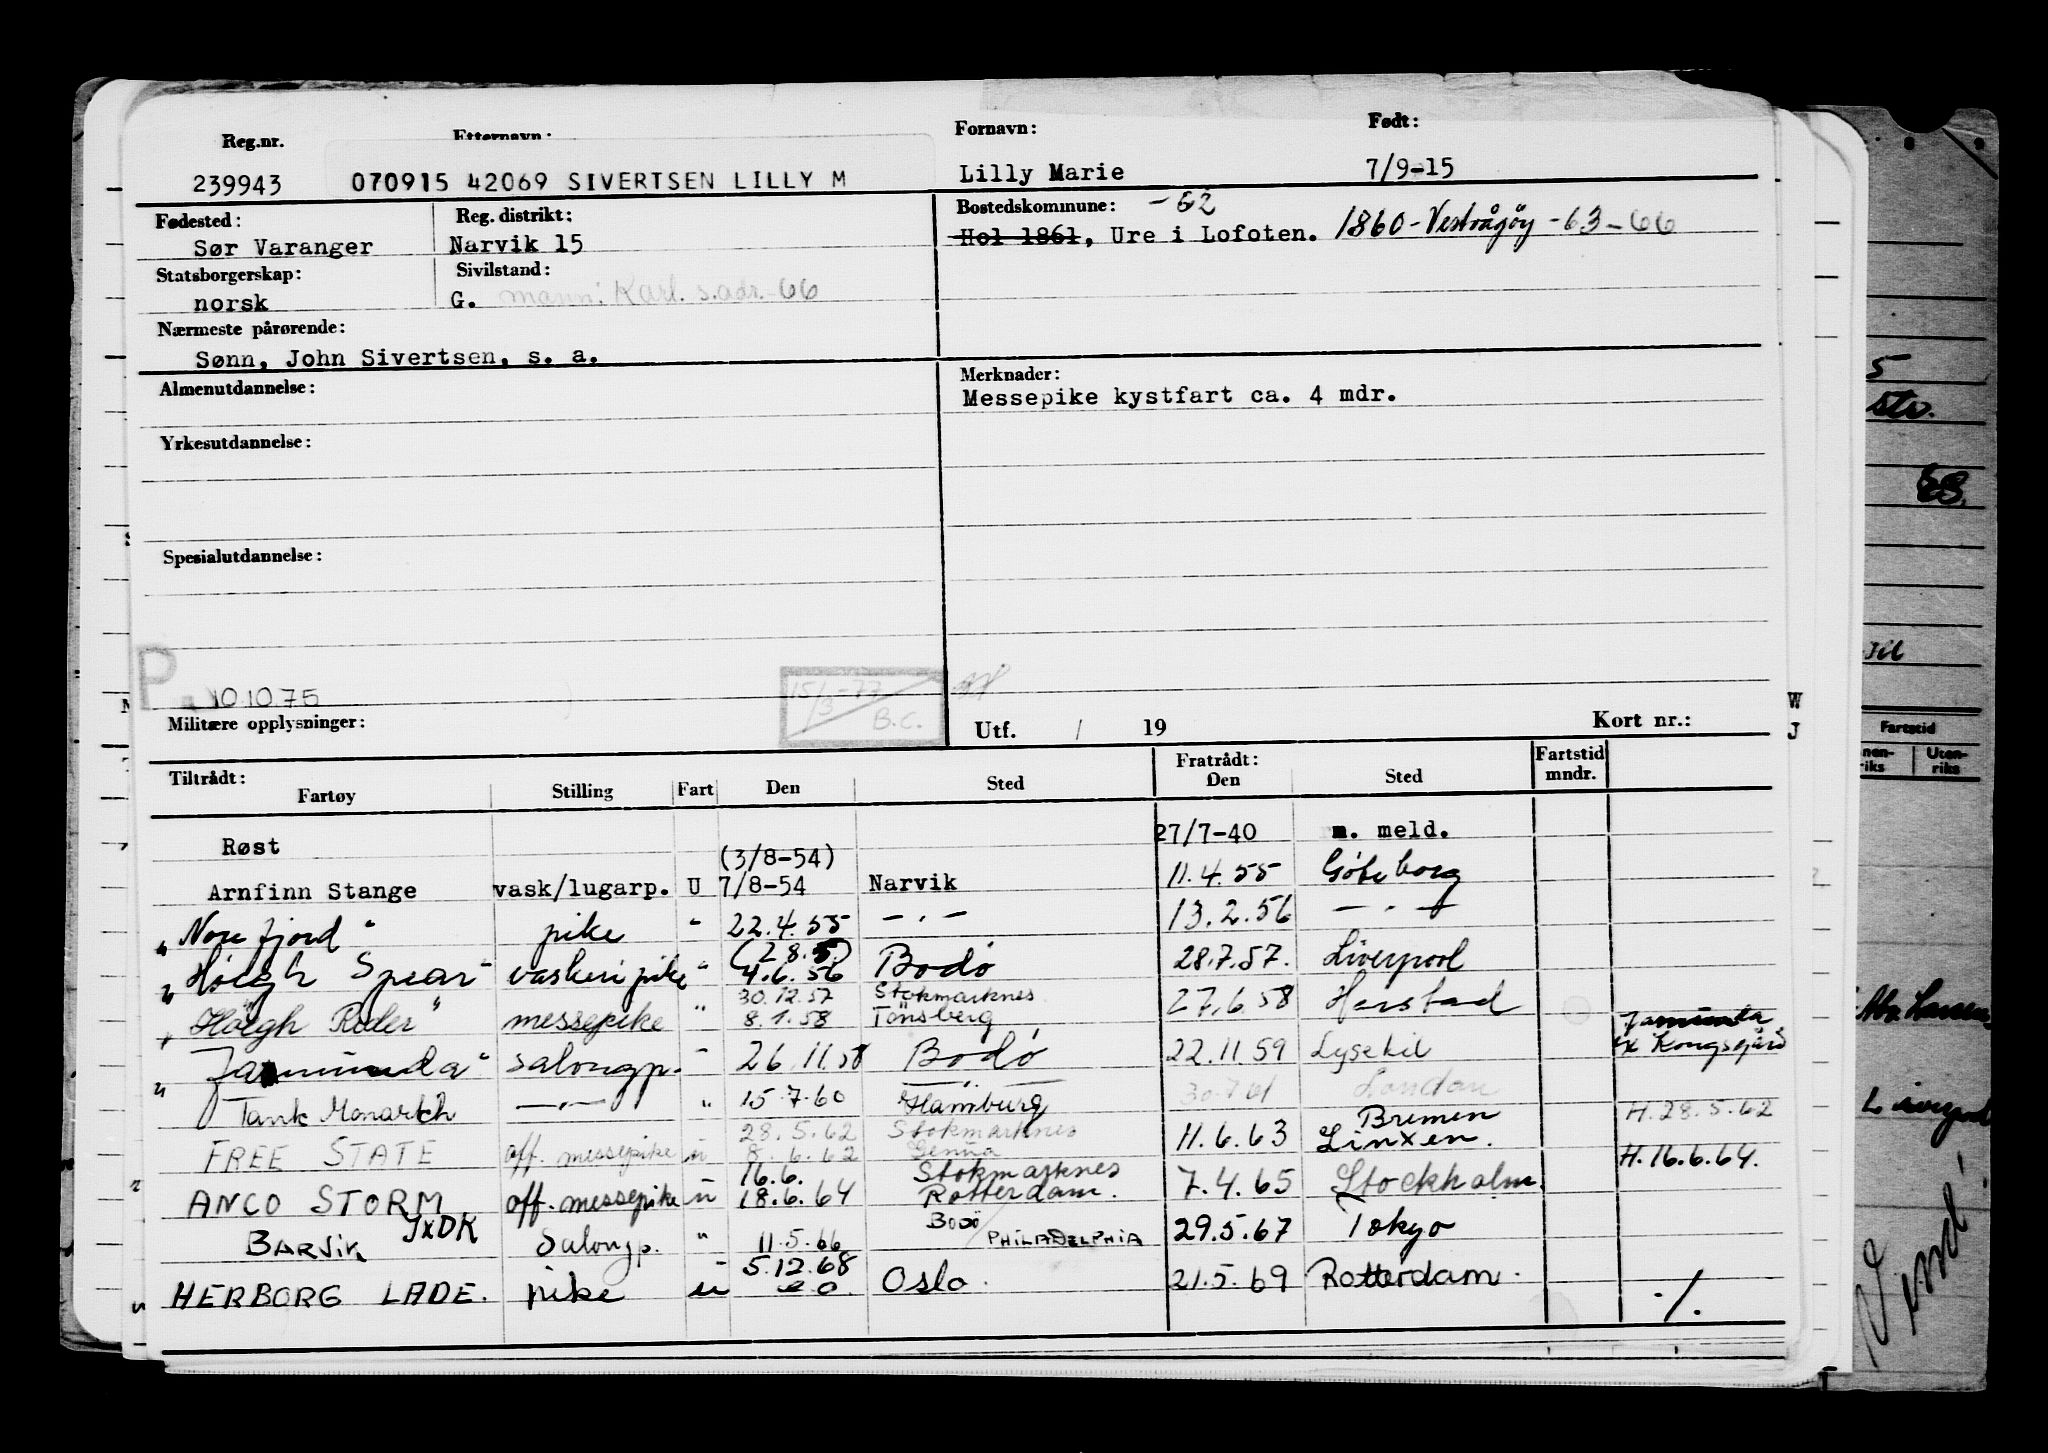 Reg.nr. Etternavn: Fornavn: Født:
239943 070915 42069 SIVERTSEN LILLY M Lilly Marie 7/9-15
Fødested: Reg. distrikt: Bostedskommune: -62
Sør Varanger Narvik 15 Hol 1861, Ure i Lofoten. 1860-Vestvågøy-63-66
Statsborgerskap: Sivilstand:
norsk G. mann: Karl. s.adr.-66
Nærmeste pårørende:
Sønn, John Sivertsen, s. a.
Almenutdannelse: Merknader:
Messepike kystfart ca. 4 mdr.
Yrkesutdannelse:
Spesialutdannelse:
P. 10.10.75 15/3-77 B.C.
Militære opplysninger: Utf. / 19 Kort nr.:
Tiltrådt: Fratrådt: Fartstid
Fartøy Stilling Fart Den Sted Den Sted mndr.
Røst 27/7-40 m. meld.
(3/8-54)
Arnfinn Stange vask/lugarp. U 7/8-54 Narvik 11.4.55 Göteborg
" Norefjord " pike " 22.4.55 -"- 13.2.56 -"-
(28.5)
" Höegh Spear " vaskeripike " 4.6.56 Bodö 28.7.57. Liverpool
30.12.57 Stokmarknes
" Höegh Rider " messepike " 8.1.58 Tönsberg 27.6.58 Harstad
Jamunda
" Jamunda " salongp. " 26.11.58 Bodö 22.11.59 Lysekil ex Kongsfjord
Tank Monarkh -"- " 15.7.60 Hamburg 30.7.61 London
28.5.62 Stokmarknes Bremen H.28.5.62
FREE STATE off. messepike u 8.6.62 Genua 11.6.63 Linxen.
16.6. Stokmarknes H.16.6.64.
ANCO STORM off. messepike u 18.6.64 Rotterdam. 7.4.65 Stockholm.
BARVIK JXDK Salongp. " 11.5.66 Bodö / PHILADELPHIA 29.5.67 Tokyo
5.12.68
HERBORG LADE. pike u Oslo. 21.5.69 Rotterdam. ./.
W
J
5
stv.
Fartstid
Uten-
riks